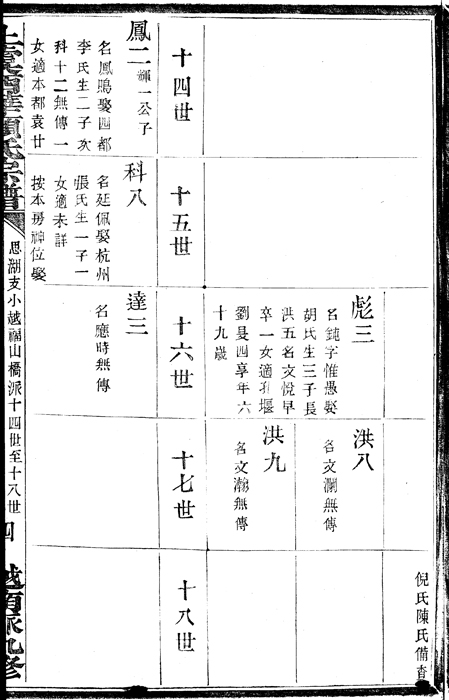 倪氏陳氏備香
彪三
名鈍字惟愚娶
胡氏生三子長
洪五名文悅早
卒一女適項堰
劉曼四享年六
十九歲
洪八
名文瀾無傳
洪九
名文瀚無傳
十四世
十五世
十六世
十七世
十八世
鳳二
輝一公子
名鳳鳴娶四都
李氏生二子次
科十二無傳一
女適本都袁廿
科八
名廷佩娶杭州
張氏生一子一
女適未詳
按本房神位娶
達三
名應時無傳
思湖支小越福山橋派十四世至十八世
四